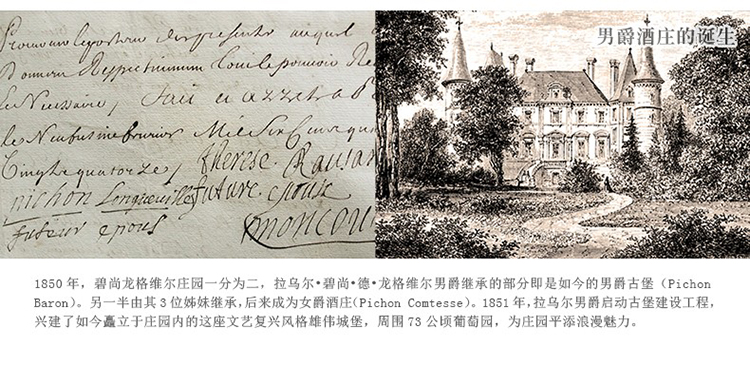 男爵酒庄的诞生
Donnent
le Necessaire, fait a azzetra
Mil six Cens quatre
Cinq te quatorze, therese Rausan
pichon Longueville future epouse
futeur epous
1850 年，碧尚龙格维尔庄园一分为二，拉乌尔•碧尚•德•龙格维尔男爵继承的部分即是如今的男爵古堡（Pichon
Baron）。另一半由其 3 位姊妹继承，后来成为女爵酒庄(Pichon Comtesse)。1851 年，拉乌尔男爵启动古堡建设工程，
兴建了如今矗立于庄园内的这座文艺复兴风格雄伟城堡，周围 73 公顷葡萄园，为庄园平添浪漫魅力。